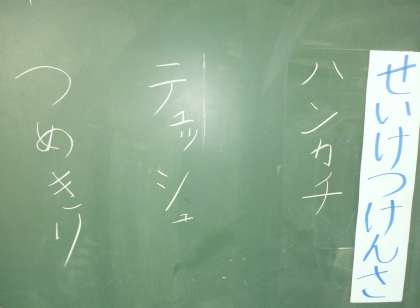 せいけつけんさ
ハンカチ
テュッシュ
つめきり